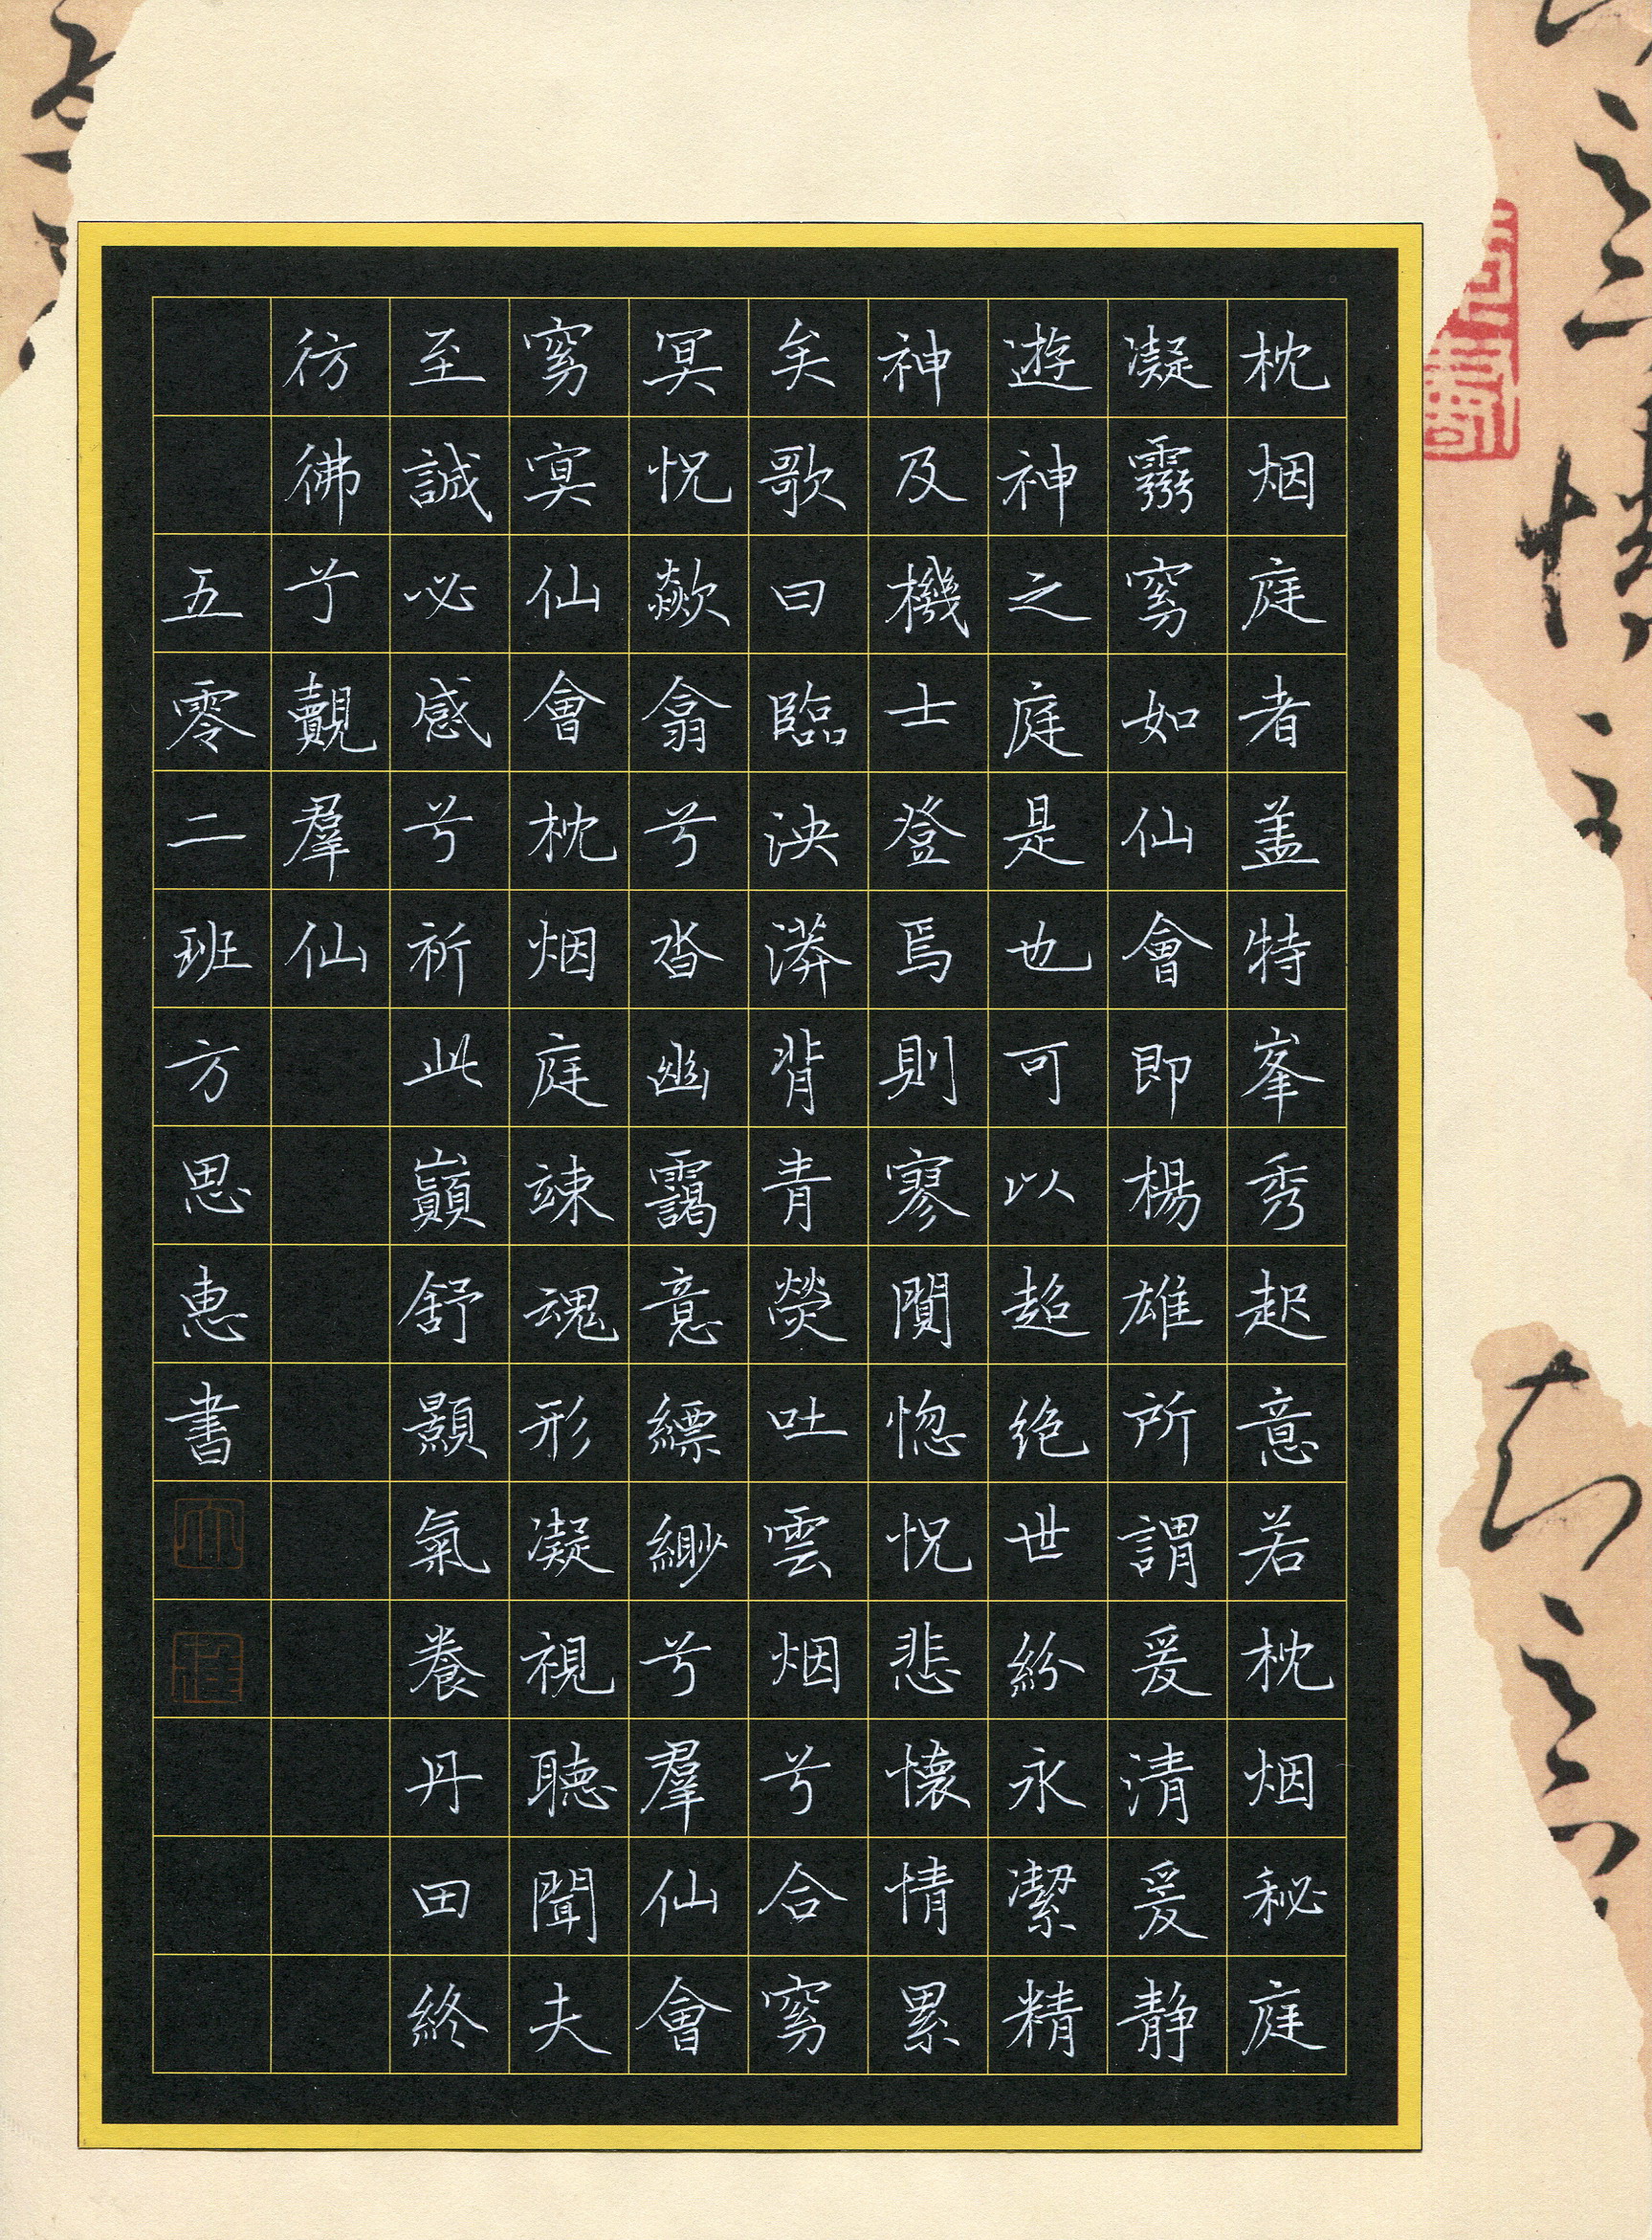 枕烟庭者盖特峯秀起意若枕烟秘庭
凝靈窅如仙會即楊雄所謂爰清爰静
遊神之庭是也可以超绝世紛永潔精
神及機士登焉則寥闃惚怳悲懷情累
矣歌曰臨泱漭背青熒吐雲烟兮合窅
冥怳歘翕兮沓幽靄意縹緲兮羣仙會
窅冥仙會枕烟庭竦魂形凝視聽聞夫
至誠必感兮祈此巔舒顥氣養丹田終
彷彿兮覿羣仙
五零二班方思惠書